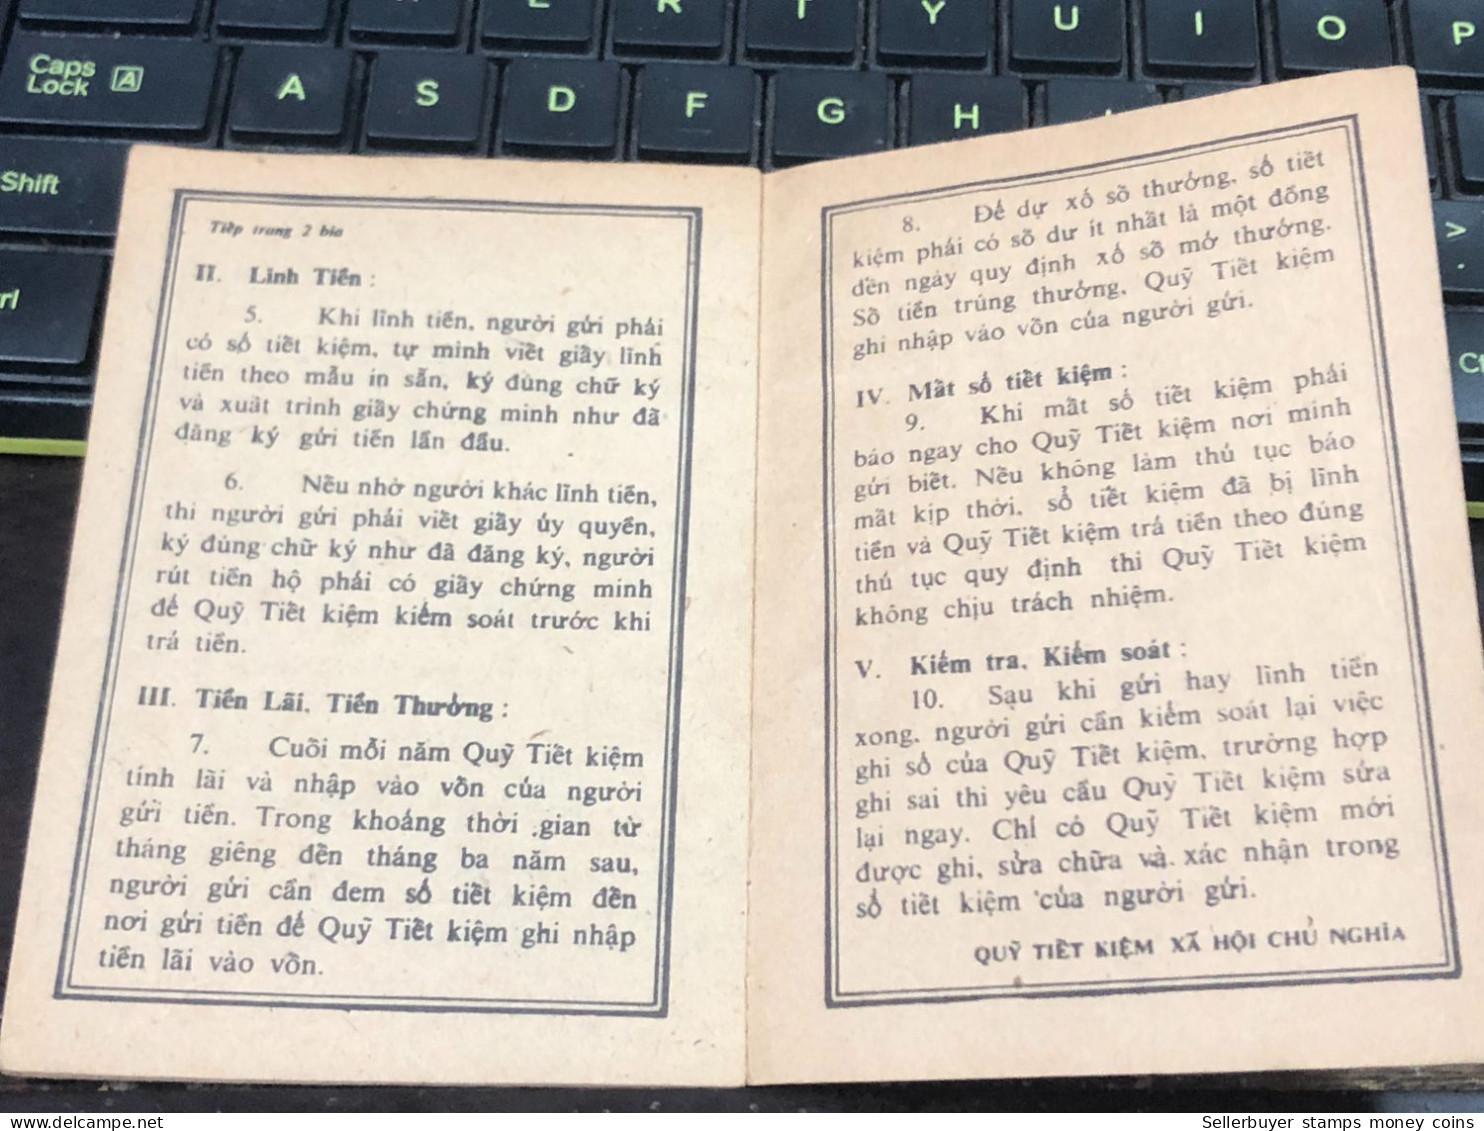 Caps
Lock A
Shift
E R T Y U I O P
A S D F G H
Tiếp trang 2 bìa
II. Lĩnh Tiền :
5. Khi lĩnh tiền, người gửi phải
có sổ tiết kiệm, tự mình viết giấy lĩnh
tiền theo mẫu in sẵn, ký đúng chữ ký
và xuất trình giấy chứng minh như đã
đăng ký gửi tiền lần đầu.
6. Nếu nhờ người khác lĩnh tiền,
thì người gửi phải viết giấy ủy quyền,
ký đúng chữ ký như đã đăng ký, người
rút tiền hộ phải có giấy chứng minh
để Quỹ Tiết kiệm kiểm soát trước khi
trả tiền.
III. Tiền Lãi, Tiền Thưởng :
7. Cuối mỗi năm Quỹ Tiết kiệm
tính lãi và nhập vào vốn của người
gửi tiền. Trong khoảng thời gian từ
tháng giêng đến tháng ba năm sau,
người gửi cần đem sổ tiết kiệm đến
nơi gửi tiền để Quỹ Tiết kiệm ghi nhập
tiền lãi vào vốn.
8. Để dự xổ số thưởng, sổ tiết
kiệm phải có số dư ít nhất là một đồng
đến ngày quy định xổ số mở thưởng.
Số tiền trúng thưởng, Quỹ Tiết kiệm
ghi nhập vào vốn của người gửi.
IV. Mất sổ tiết kiệm :
9. Khi mất sổ tiết kiệm phải
báo ngay cho Quỹ Tiết kiệm nơi mình
gửi biết. Nếu không làm thủ tục báo
mất kịp thời, sổ tiết kiệm đã bị lĩnh
tiền và Quỹ Tiết kiệm trả tiền theo đúng
thủ tục quy định thì Quỹ Tiết kiệm
không chịu trách nhiệm.
V. Kiểm tra, Kiểm soát :
10. Sạu khi gửi hay lĩnh tiền
xong, người gửi cần kiểm soát lại việc
ghi sổ của Quỹ Tiết kiệm, trường hợp
ghi sai thì yêu cầu Quỹ Tiết kiệm sửa
lại ngay. Chỉ có Quỹ Tiết kiệm mới
được ghi, sửa chữa và xác nhận trong
sổ tiết kiệm của người gửi.
QUỸ TIẾT KIỆM XÃ HỘI CHỦ NGHĨA
Sellerbuyer stamps money coins